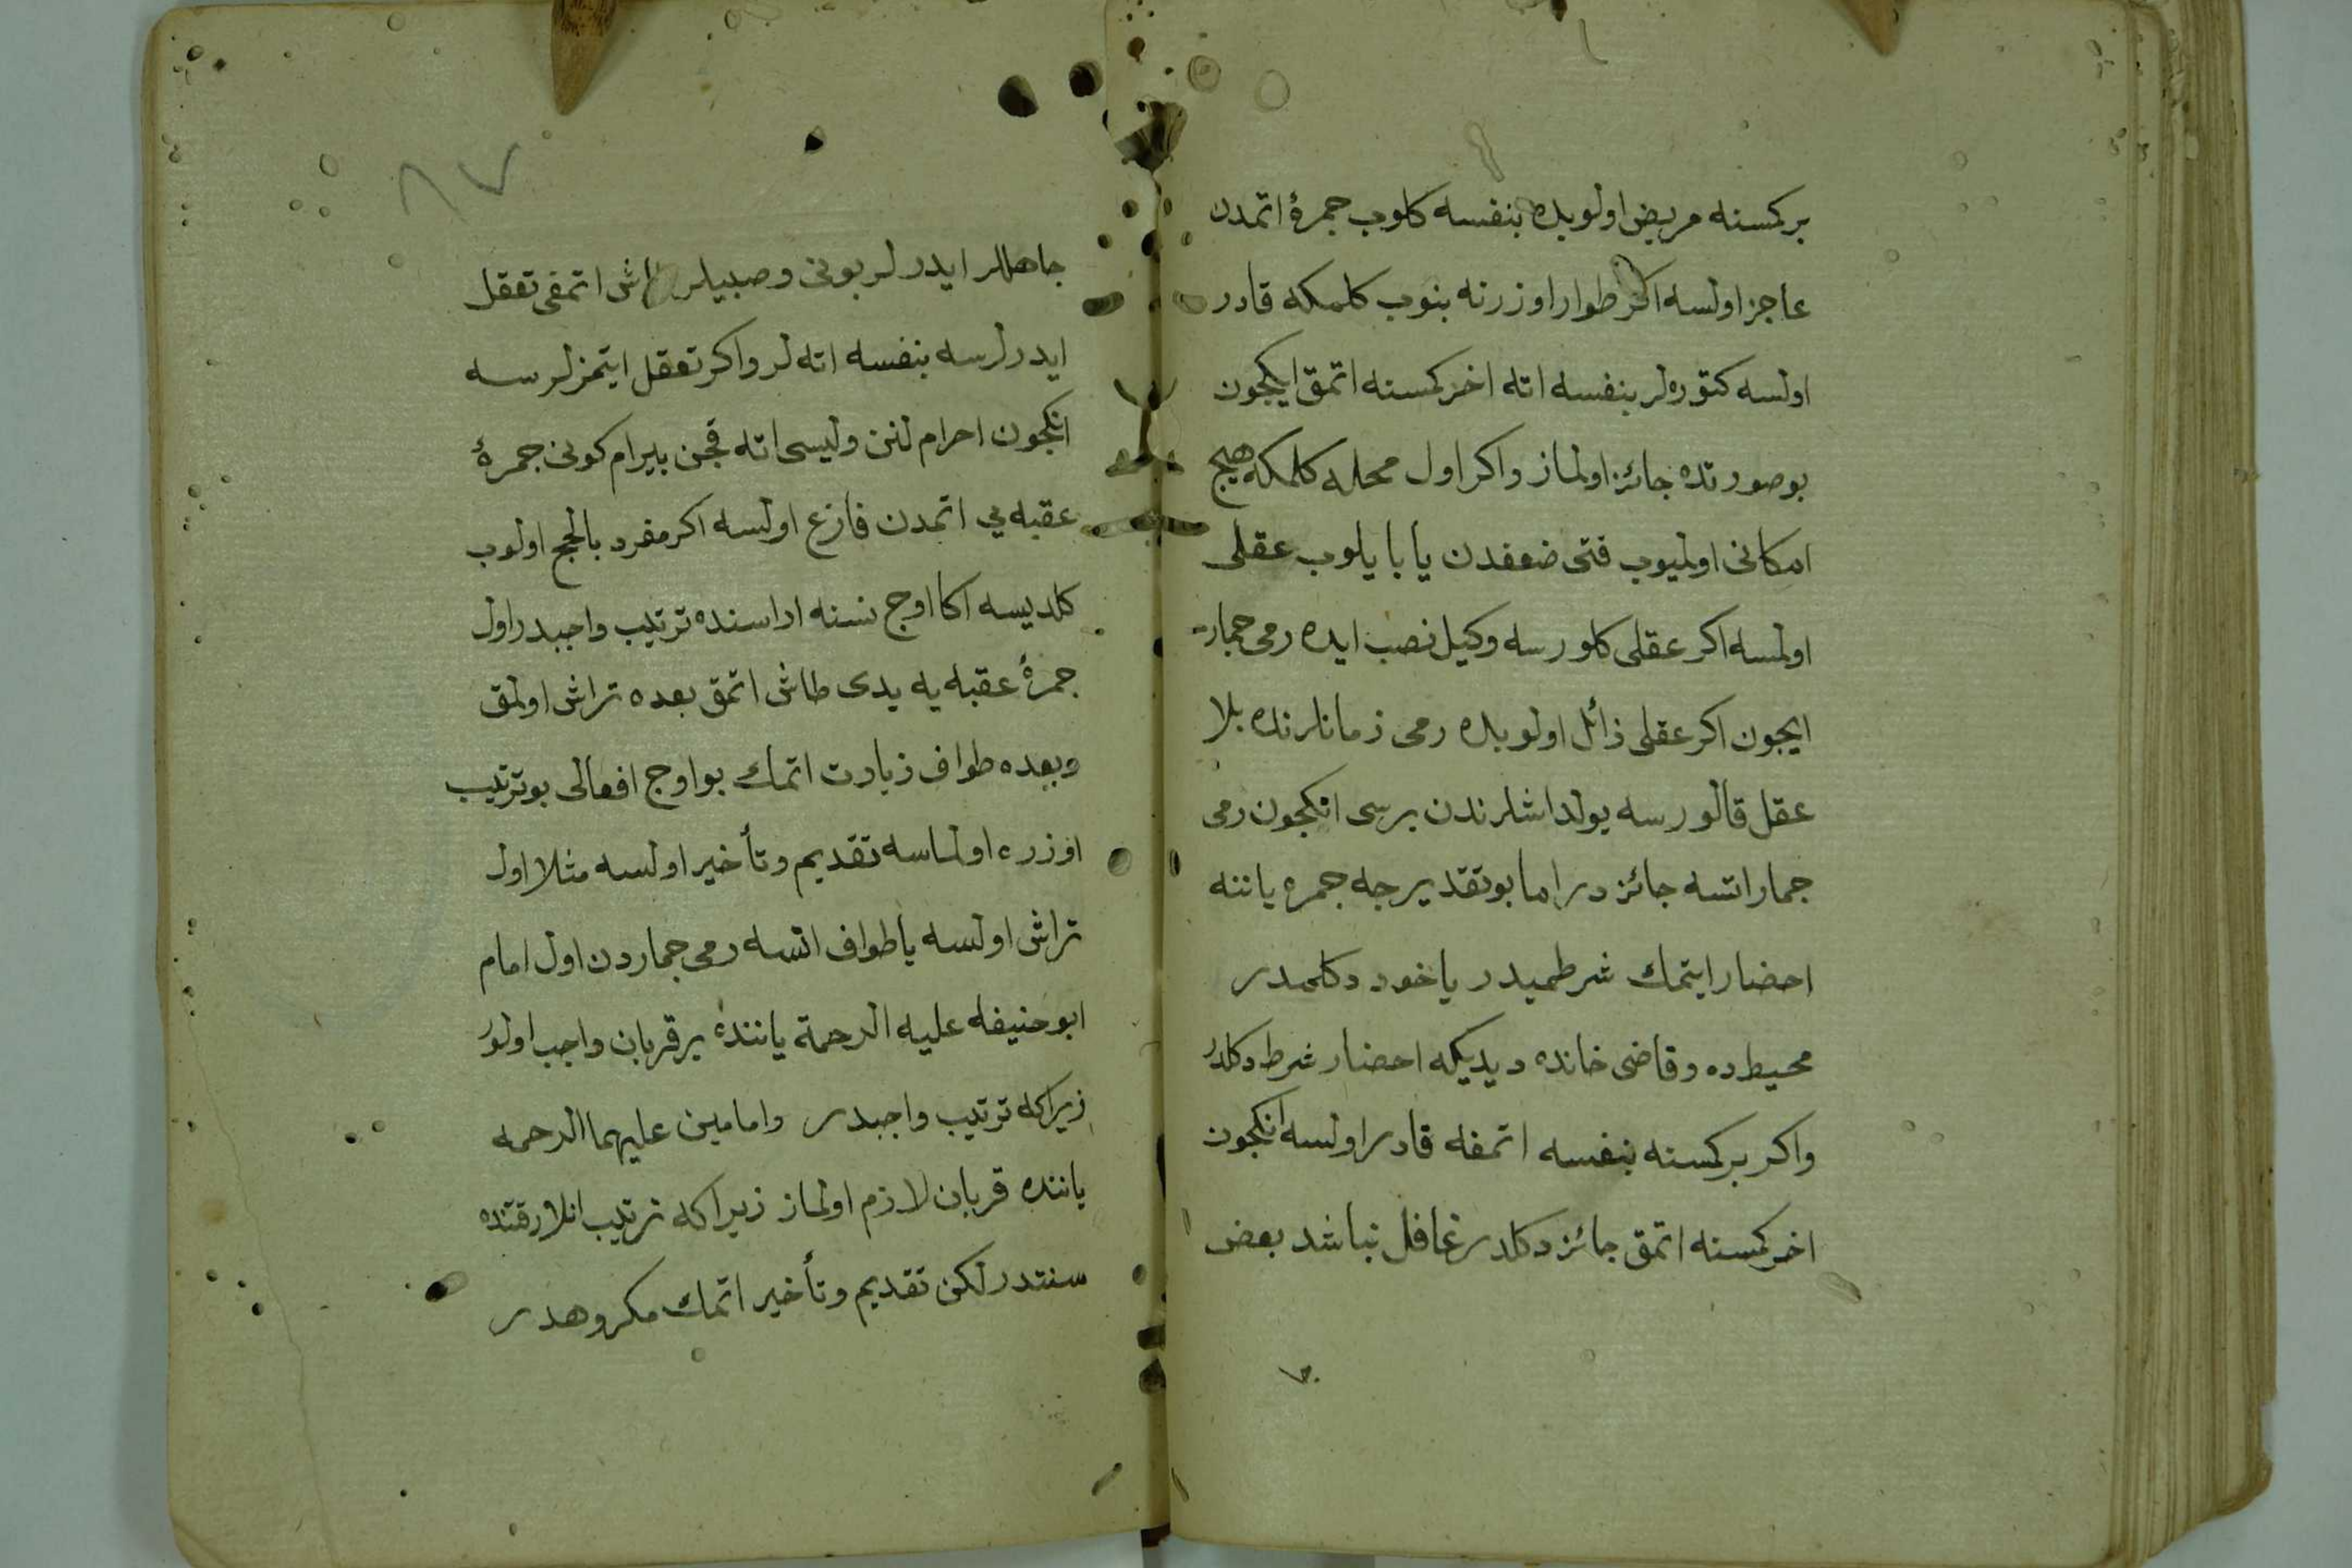 بر كمسنه مريض اولوبده بنفسه كلوب جمرۀ اتمدن
عاجز اولسه اكر طوار اوزرنه بنوب كلمكه قادر
اولسه كتوره‌لر بنفسه اته اخر كمسنه اتمق ايكجون
بو صورتده جائز اولماز واكر اول محله كلمكه هيچ
امكانى اولميوب فتى ضعفدن يا بايلوب عقلى
اولمسه اكر عقلى كلورسه وكيل نصب ايده رمى جمار
ايجون اكر عقلى زائل اولوبده رمى زمانلرنده بلا
عقل قالورسه يولداشلرندن برسى انكجون رمى
جمار اتسه جائزدر اما بو تقديرجه جمره ياننه
احضار ايتمك شرطميدر ياخود دكلميدر
محيطده وقاضى خانده ديديكه احضار شرط دكلدر
واكر بر كمسنه بنفسه اتمغه قادر اولسه انكجون
اخر كمسنه اتمق جائز دكلدر غافل نباشد بعض
٨٧
جاهللر ايدرلر بونى وصبيلر طاش اتمغى تعقل
ايدرلرسه بنفسه اته‌لر واكر تعقل ايتمزلرسه
انكجون احرام لنن وليسى اته قچن بيرام كونى جمرۀ
عقبه يي اتمدن فارغ اولسه اكر مفرد بالحج اولوب
كلديسه اكا اوج نسنه اراسنده ترتيب واجبدر اول
جمرۀ عقبه يه يدى طاش اتمق بعده تراش اولمق
وبعده طواف زيارت اتمك بو اوج افعالى بو ترتيب
اوزره اولماسه تقديم وتأخير اولسه مثلا اول
تراش اولسه يا طواف اتسه رمى جماردن اول امام
ابو حنيفه عليه الرحمة ياننده بر قربان واجب اولور
زيراكه ترتيب واجبدر وامامين عليهما الرحمه
ياننده قربان لازم اولماز زيراكه ترتيب انلار قتنده
سنتدر لكن تقديم وتأخير اتمك مكروهدر